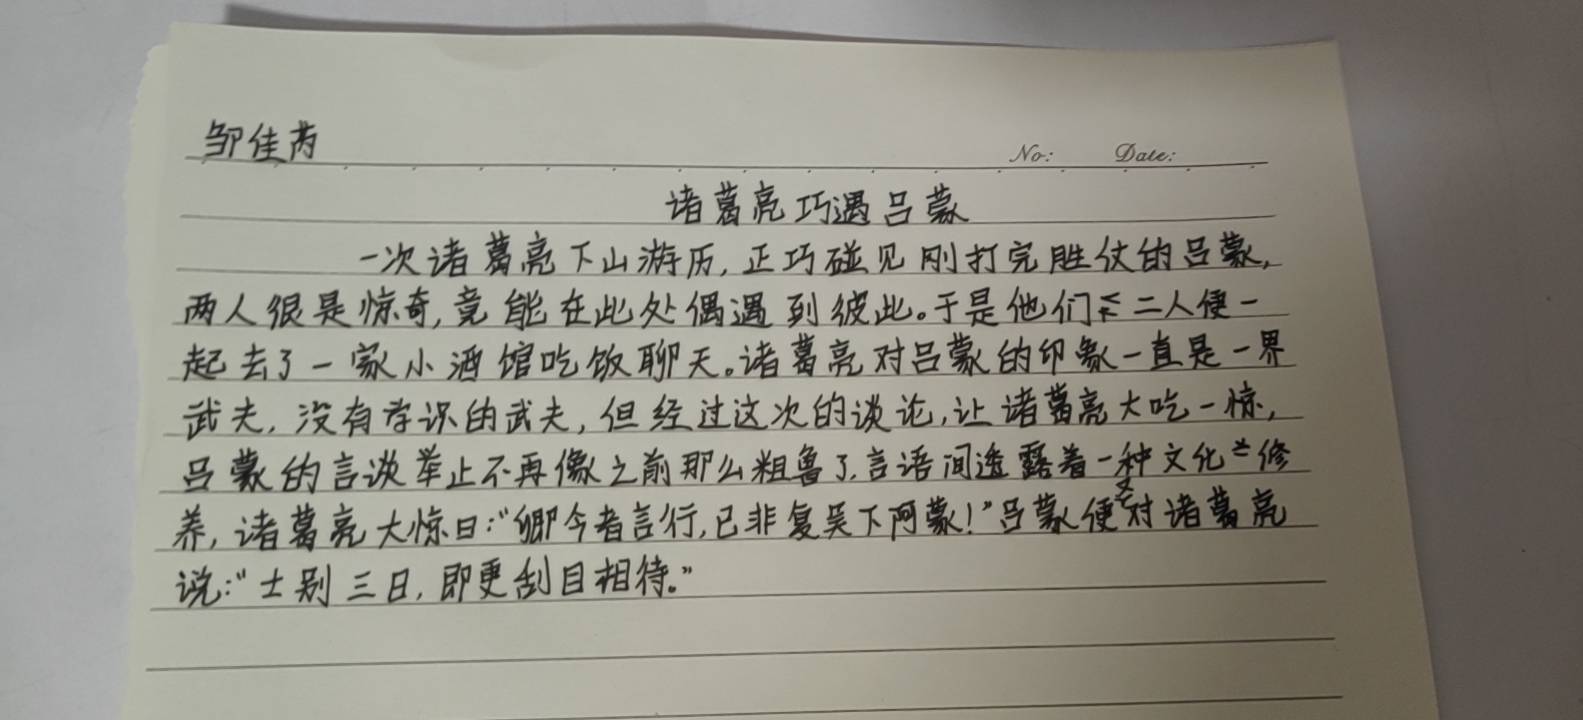 邹佳芮
No: Date:
诸葛亮巧遇吕蒙
一次诸葛亮下山游历,正巧碰见刚打完胜仗的吕蒙,
两人很是惊奇,竟能在此处偶遇到彼此。于是他们二人便一
起去了一家小酒馆吃饭聊天。诸葛亮对吕蒙的印象一直是一界
武夫,没有学识的武夫,但经过这次的谈论,让诸葛亮大吃一惊,
吕蒙的言谈举止不再像之前那么粗鲁了,言语间透露着一种文化修
养,诸葛亮大惊曰:“卿今者言行,已非复吴下阿蒙!”吕蒙便对诸葛亮
说:“士别三日,即更刮目相待。”